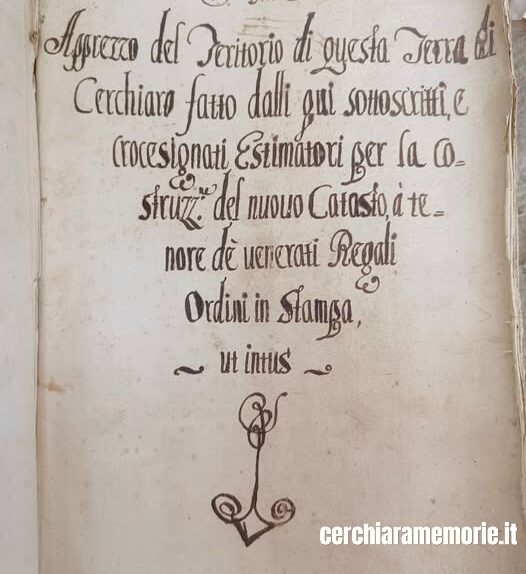 Apprezzo del Territorio di questa Terra di
Cerchiaro fatto dalli qui sottoscritti, e
crocesignati Estimatori per la co=
struzz.ne del nuovo Catasto, à te=
nore dè venerati Regali
Ordini in Stampa,
~ ut intus ~
cerchiaramemorie.it